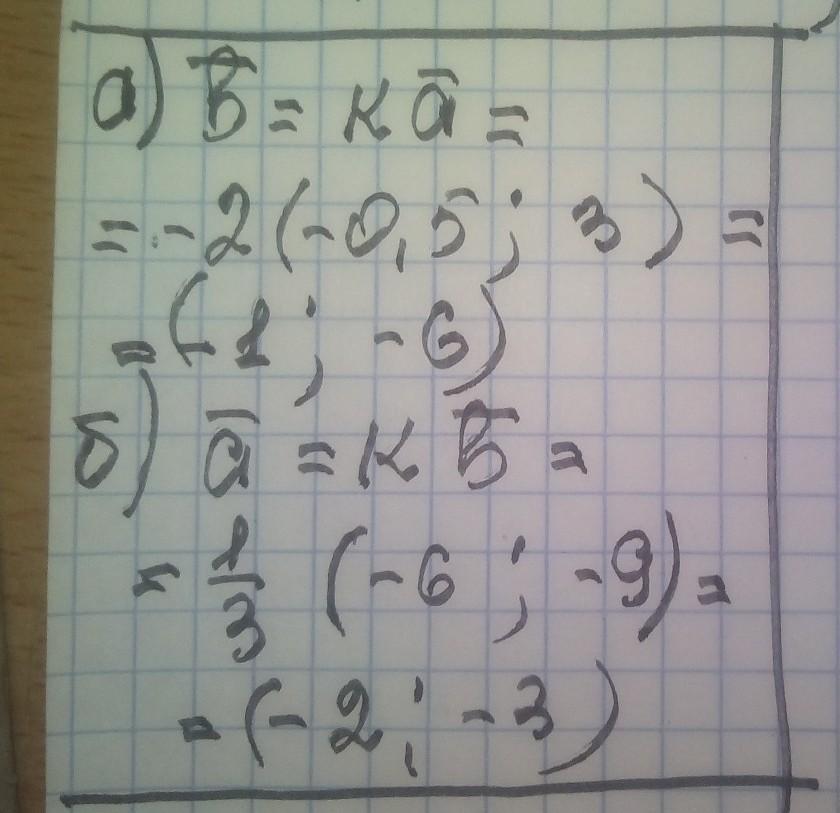 а) b̅ = к a̅ =
= -2 (-0,5 ; 3) =
= (-1 ; -6)
б) a̅ = к b̅ =
= 1/3 (-6 ; -9) =
= (-2 ; -3)